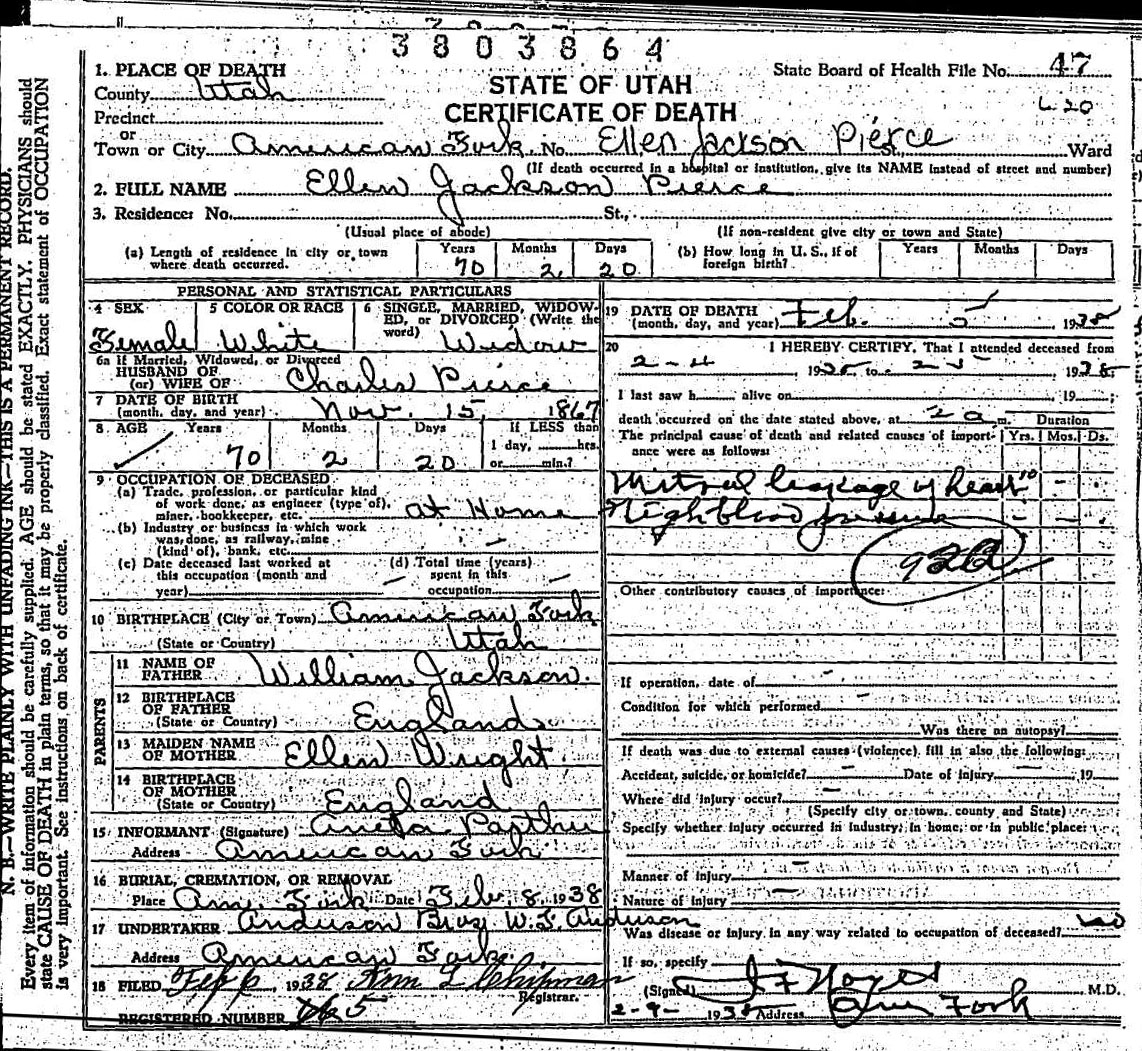 3803864
1. PLACE OF DEATH
County Utah
STATE OF UTAH
CERTIFICATE OF DEATH
State Board of Health File No. 47
L 20
Precinct
or
Town or City American Fork No. Ellen Jackson Pierce St., Ward
(If death occurred in a hospital or institution, give its NAME instead of street and number)
2. FULL NAME Ellen Jackson Pierce
3. Residence: No. St.,
(Usual place of abode) (If non-resident give city or town and State)
(a) Length of residence in city or town where death occurred. Years 70 Months 2 Days 20
(b) How long in U. S., if of foreign birth? Years Months Days
PERSONAL AND STATISTICAL PARTICULARS
4 SEX Female
5 COLOR OR RACE White
6 SINGLE, MARRIED, WIDOWED, or DIVORCED (Write the word) Widow
6a If Married, Widowed, or Divorced
HUSBAND OF
(or) WIFE OF Charles Pierce
7 DATE OF BIRTH
(month, day, and year) Nov. 15, 1867
8 AGE Years 70 Months 2 Days 20 If LESS than 1 day, hrs. or min.?
9 OCCUPATION OF DECEASED
(a) Trade, profession, or particular kind
of work done, as engineer (type of),
miner, bookkeeper, etc. at Home
(b) Industry or business in which work
was done, as railway, mine
(kind of), bank, etc. –
(c) Date deceased last worked at
this occupation (month and
year) –
(d) Total time (years)
spent in this
occupation –
10 BIRTHPLACE (City or Town) American Fork
(State or Country) Utah
PARENTS
11 NAME OF
FATHER William Jackson
12 BIRTHPLACE
OF FATHER
(State or Country) England
13 MAIDEN NAME
OF MOTHER Ellen Wright
14 BIRTHPLACE
OF MOTHER
(State or Country) England
15 INFORMANT (Signature)
Address American Fork
16 BURIAL, CREMATION, OR REMOVAL
Place Am. Fork Date Feb. 8, 1938
17 UNDERTAKER Anderson Bros W. F. Anderson
Address American Fork
18 FILED 1938 Ann L Chipman
Registrar.
REGISTERED NUMBER 5
19 DATE OF DEATH
(month, day, and year) Feb. 5, 1938
20 I HEREBY CERTIFY, That I attended deceased from
2-4 19 to 2-5 1938
I last saw h alive on , 19 ;
death occurred on the date stated above, at 2 a m.
The principal cause of death and related causes of importance were as follows: Duration Yrs. Mos. Ds.
Mitral leakage of heart 10 - -
High blood pressure - -
92a
Other contributory causes of importance:
If operation, date of –
Condition for which performed –
Was there an autopsy?
If death was due to external causes (violence) fill in also the following:
Accident, suicide, or homicide? – Date of injury – , 19
Where did injury occur? –
(Specify city or town, county and State)
Specify whether injury occurred in industry, in home, or in public place:
Manner of injury
Nature of injury –
Was disease or injury in any way related to occupation of deceased? no
If so, specify
(Signed) M.D.
2-9- 1938 Address Am Fork
N. B.—WRITE PLAINLY WITH UNFADING INK—THIS IS A PERMANENT RECORD.
Every item of information should be carefully supplied. AGE should be stated EXACTLY. PHYSICIANS should
state CAUSE OF DEATH in plain terms, so that it may be properly classified. Exact statement of OCCUPATION
is very important. See instructions on back of certificate.